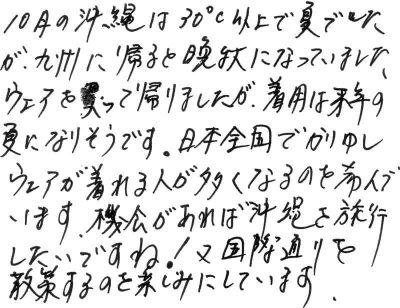 10月の沖縄は30℃以上で夏でした
が、九州に帰ると晩秋になっていました、
ウェアを買って帰りましたが、着用は来年の
夏になりそうです。日本全国でかりゆし
ウェアが着れる人が多くなるのを望んで
います、機会があれば沖縄を旅行
したいですね！又国際通りを
散策するのを楽しみにしています.